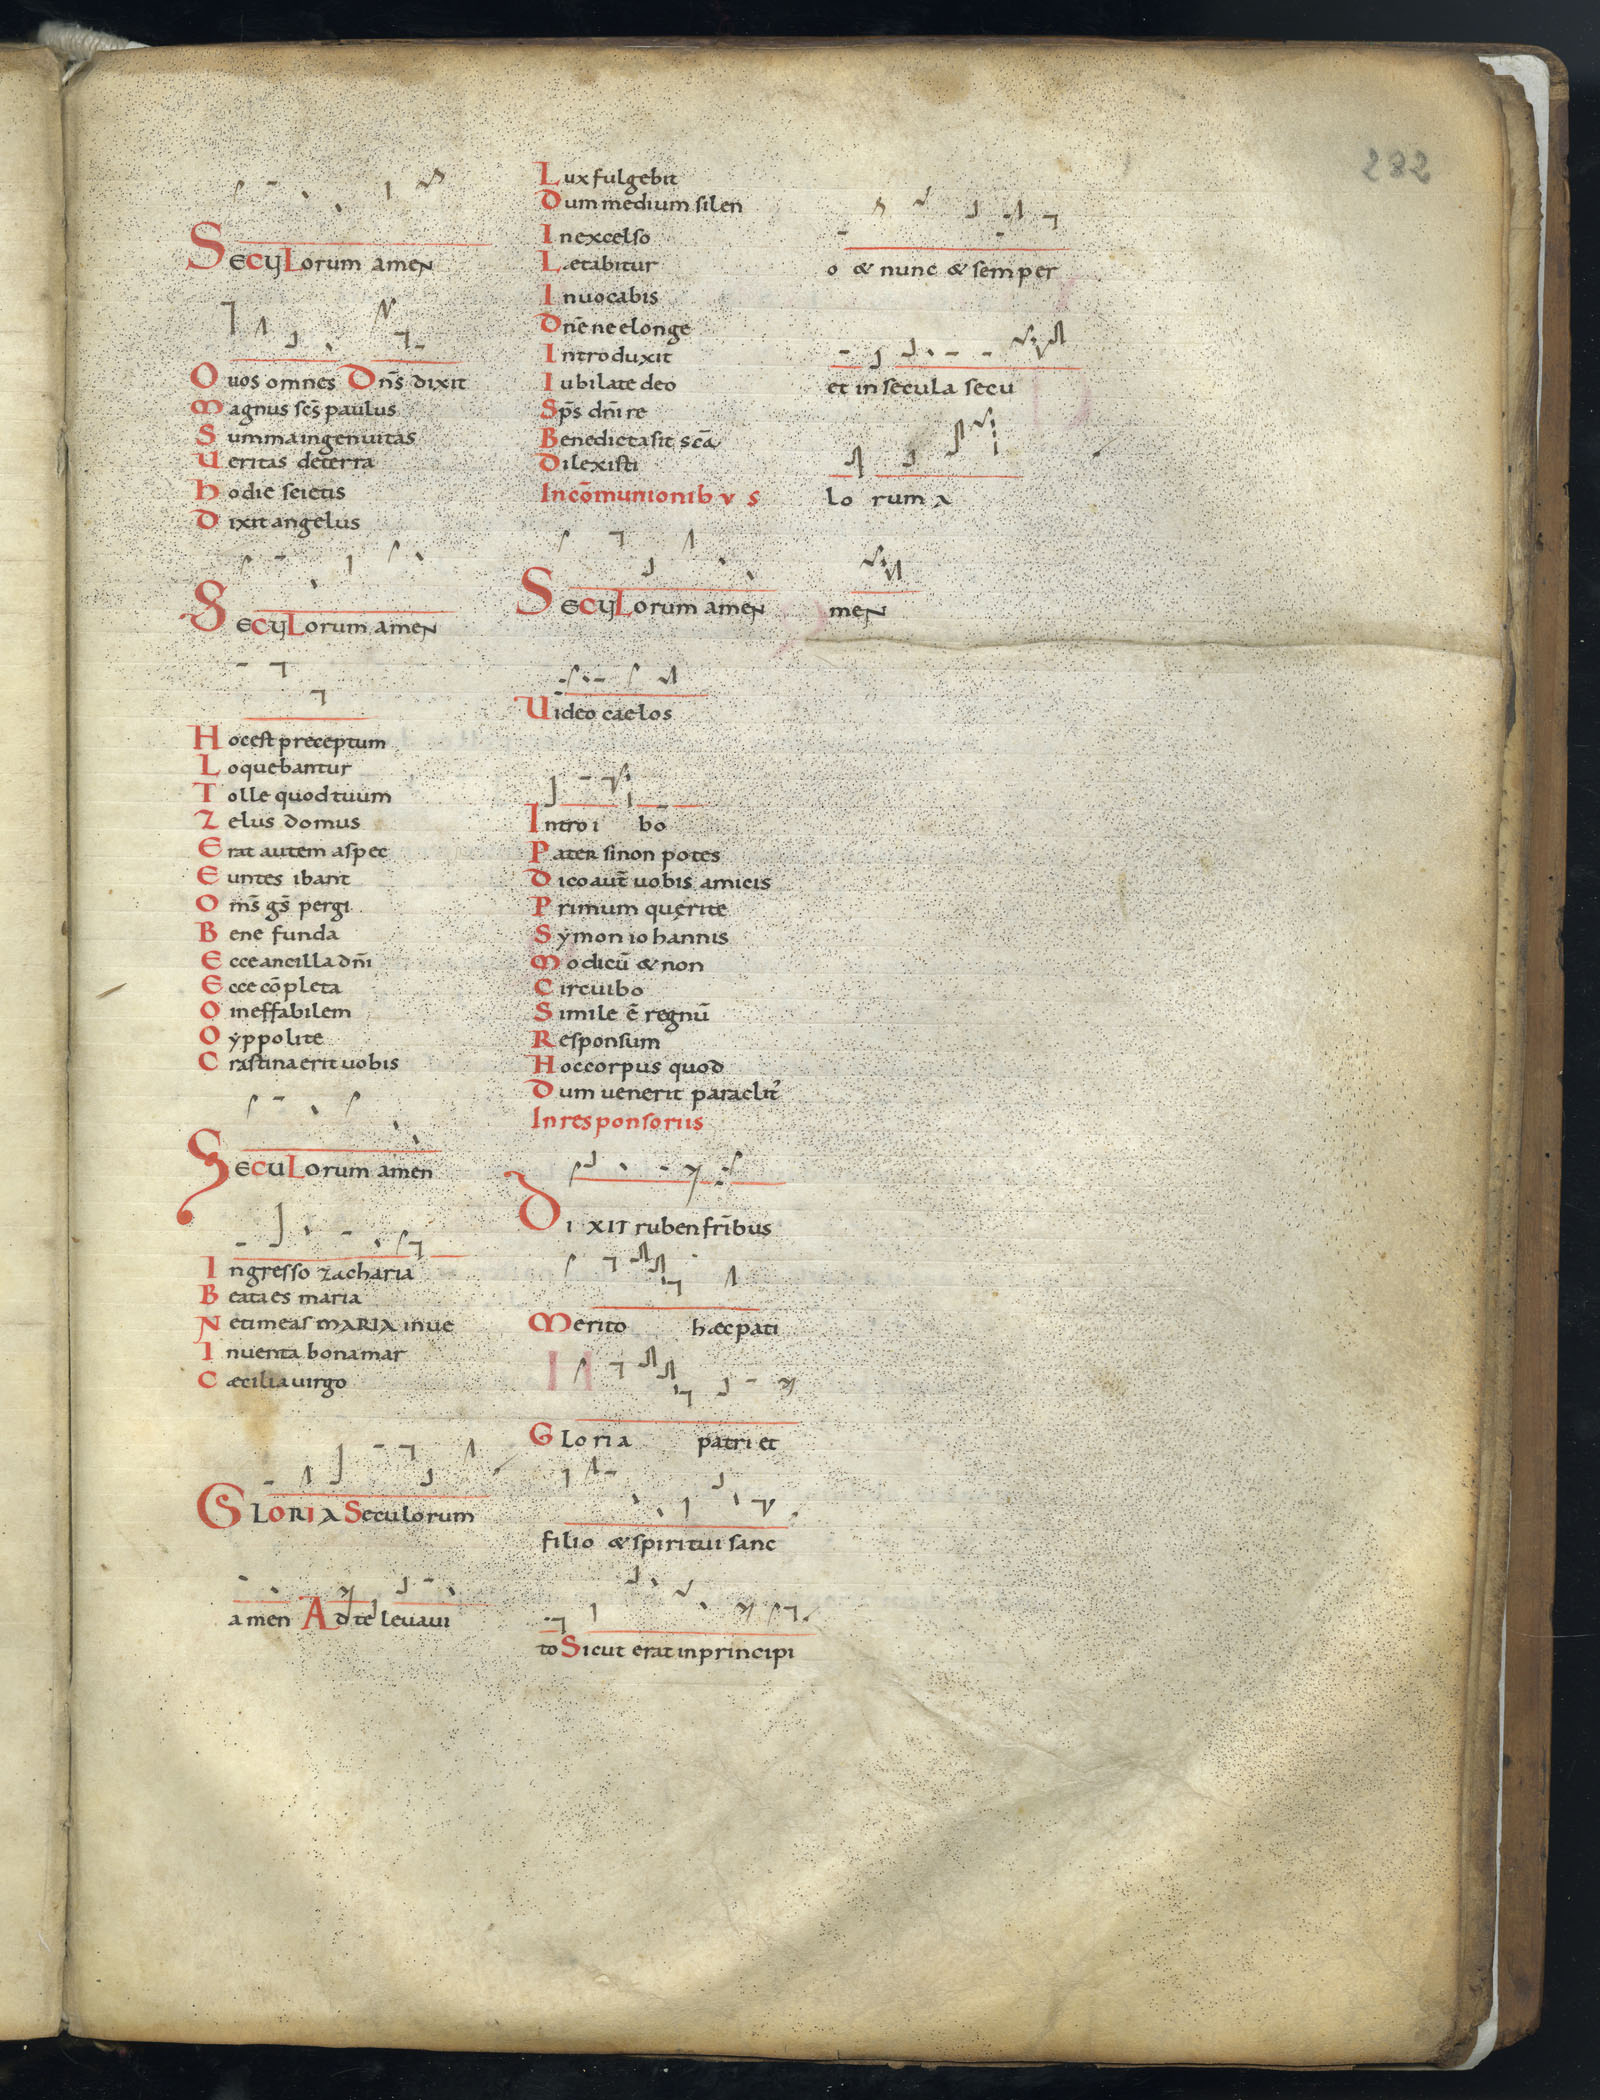 232
Secylorum amen
O uos omnes Dn̄s dixit
Magnus scs̄ paulus
Summa ingenuitas
Ueritas deterra
hodie scietis
Dixit angelus
Secylorum amen
Hocest preceptum
Loquebantur
Tolle quod tuum
Zelus domus
Erat autem aspec
Euntes ibant
Oms̄ gs̄ pergi
Bene funda
Ecce ancilla dn̄i
Ecce cōpleta
O ineffabilem
O yppolite
Crastina erit uobis
Seculorum amen
Ingresso zacharia
Beata es maria
Netimeas maria inue
Inuenta bona mar
Cæcilia uirgo
Gloria Seculorum
amen Ad te leuaui
Lux fulgebit
Dum medium silen
In excelso
Lætabitur
Inuocabis
Dn̄e ne elonge
Introduxit
Iubilate deo
Sps̄ dn̄i re
Benedicta sit scā
Dilexisti
In cōmunionibvs
Secylorum amen
Uideo caelos
Introi bo
Pater si non potes
Dico aut̄ uobis amicis
Primum querite
Symon iohannis
Modicū & non
Circuibo
Simile ē regnū
Responsum
Hoc corpus quod
Dum uenerit paraclit᾿
In responsoriis
Dixit ruben frībus
Merito hæc pati
Gloria patri et
filio & spiritui sanc
to Sicut erat in principi
o & nunc & semper
et in secula secu
lo rum a
men